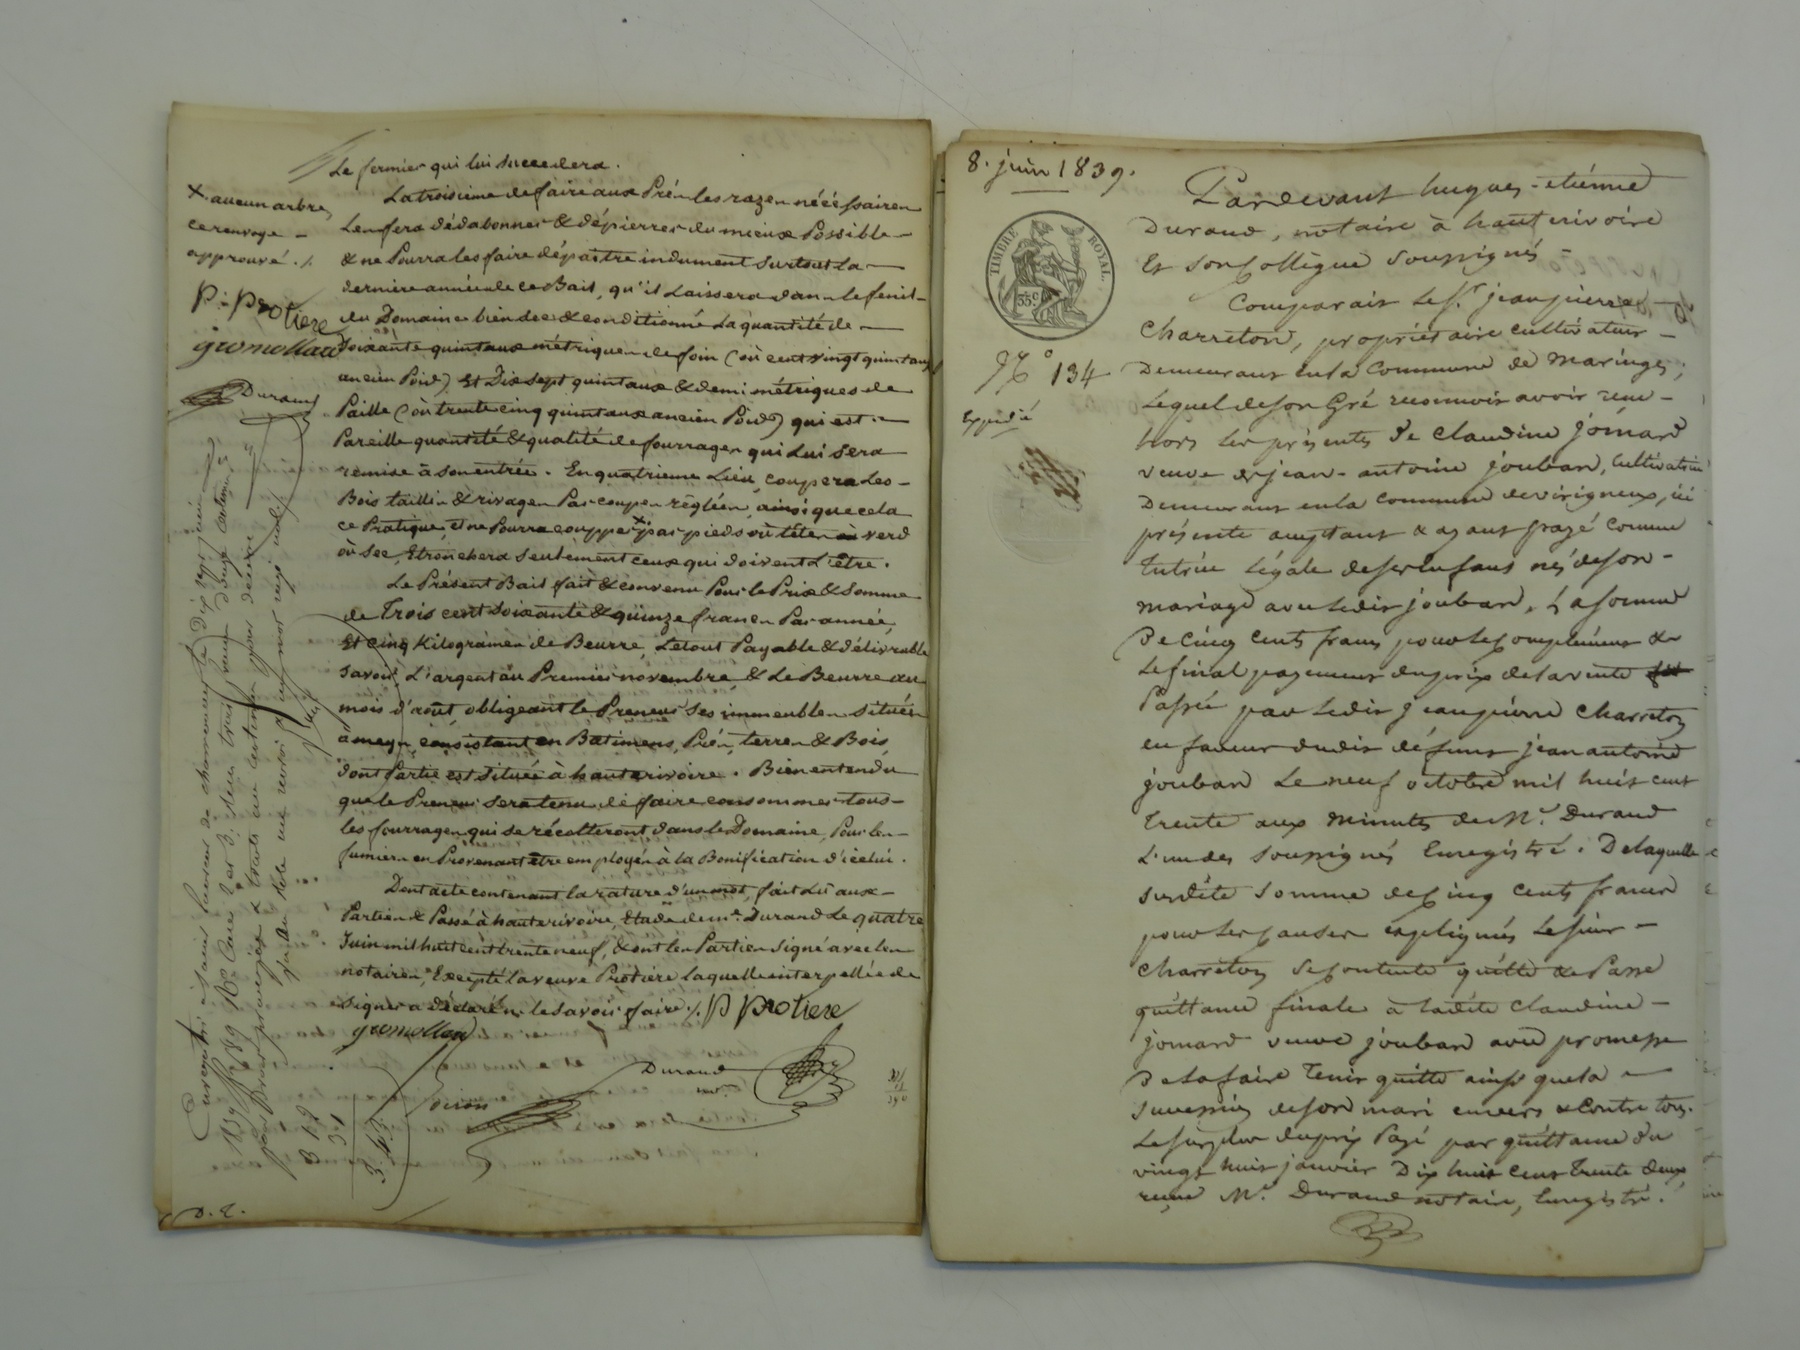 Le fermier qui lui succedera.
La troisieme de faire aux Prés les razes nécéssaires
Les fera dédabonner & dépierrer du mieux Possible
& ne Pourra les faire dépaitre indument surtout la
derniere année de ce Bail, qu'il Laissera dans le fenil
du Domaine bien sec & conditionné La quantité de
Soixante quintaux métriques de foin (où cent vingt quintaux
ancien Poid) Et Dix sept quintaux & demi métriques de
Paille (où trente cinq quintaux ancien Poid) qui est
Pareille quantité & qualité de fourrages qui Lui sera
remise à son entrée. En quatrieme Lieu, coupera Les
Bois taillis & rivages Par coupes réglées, ainsi que cela
ce Pratique, & ne Pourra coupper x par pieds où têtes où verd
où sec, Etronchera seulement ceux qui doivent L'être.
Le Présent Bail fait & convenu Pour le Prix & Somme
de Trois cent soixante & quinze francs Par année,
Et cinq Kilogrames de Beurre, Le tout Payable & délivrable
savoir L'argent au Premier novembre, & Le Beurre au
mois d'août, obligeant le Preneur ses immeubles situés
à meys, consistant en Batimens, Prés, terres & Bois
dont Partie est située à hauterivoire. Bien entendu
que le Preneur sera tenu de faire consommer tous
les fourrages qui se récolteront dans le Domaine, Pour les
fumiers en Provenant être employés à la Bonification d'icelui.
Dont acte contenant la rature d'un mot, fait Lû aux
Parties & Passé à hauterivoire, étude de me. Durand Le quatre
Juin mil huit cent trente neuf, & ont les Parties signé avec les
notaires, Excepté la veuve Protiere laquelle interpellée de
signer a déclaré ne le savoir faire ./. P Protiere
gromollard
Durand
not.
Coiron
x aucun arbre,
ce renvoye
approuvé ./.
P. Protiere
gromollard
Durand
Enregistré à Saint Laurent de chamousset le dix sept juin
1839
3 12
31
3.43
D. E.
8. juin 1839.
TIMBRE ROYAL
35c
No 134
Expédié
Pardevant hugues-etiénne
Durand, notaire à hauterivoire
Et son Collègue soussignés
Comparait Le Sr. jean pierre
Charreton, propriétaire cultivateur
Demeurant en la Commune de Maringes;
Lequel de son Gré reconnoit avoir reçu
hors les présentes De Claudine jomard
veuve de jean-antoine jouban, Cultivatrice
Demeurant en la Commune de virigneux, ici
présente acceptant & ayant payé Comme
tutrice Légale de ses Enfans nés de son
mariage avec Ledit jouban, La somme
De Cinq cents francs pour Le Complément &
Le final payement du prix de la vente
Passée par Ledit jean pierre Charreton
en faveur dudit défunt jean antoine
jouban Le neuf octobre mil huit cent
trente aux minutes de Me. Durand
L'un des soussignés Enregistré. De laquelle
susdite somme de Cinq cents francs
pour les Causes expliqués Le sieur
Charreton se Contente quitte & Passe
quittance finale à Ladite Claudine
jomard veuve jouban avec promesse
De la faire Tenir quitte ainsi que la
succession de son mari envers & Contre tous.
Le surplus du prix Payé par quittance du
vingt huit janvier Dix huit cent trente deux
reçue Me. Durand notaire, Enregistré.